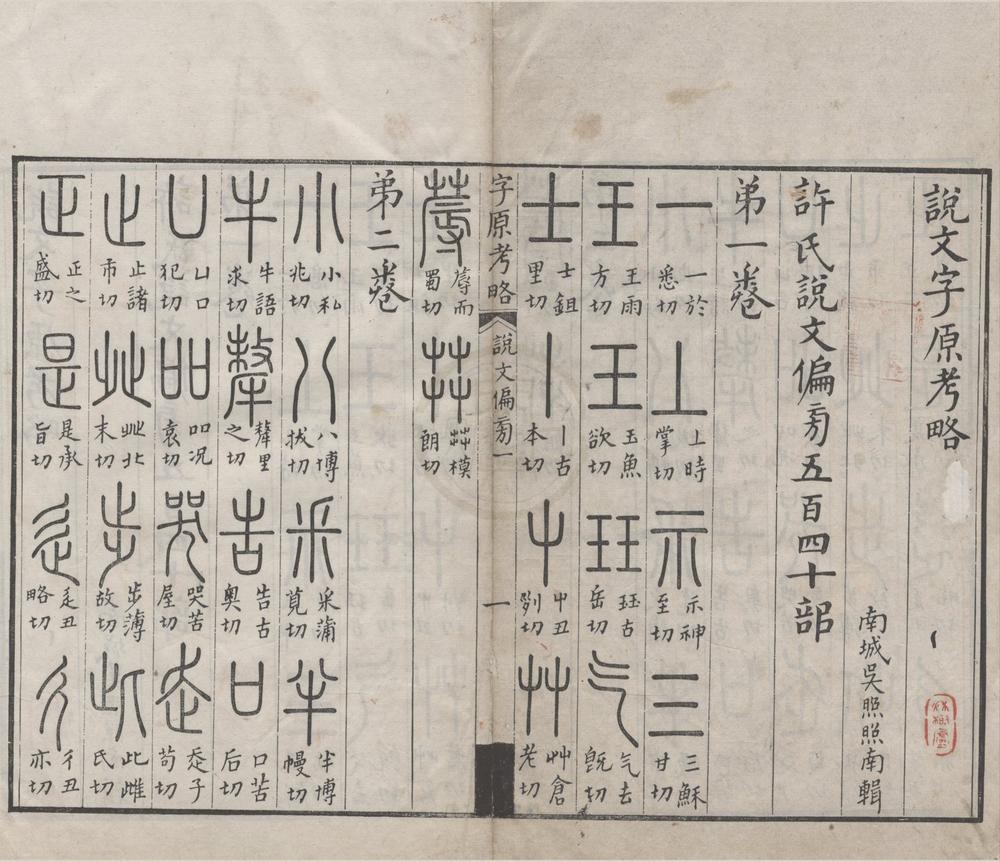 說文字原考略
南城吳照照南輯
許氏說文偏旁五百四十部
弟一卷
一 一於悉切 丄 丄時掌切 示 示神至切 三 三穌甘切
王 王雨方切 王 玉魚欲切 玨 玨古岳切 气 气去旣切
士 士鉏里切 丨 丨古本切 屮 屮丑列切 艸 艸倉老切
字原考略 說文偏旁一 一
蓐 蓐而蜀切 茻 茻模朗切
弟二卷
小 小私兆切 八 八博拔切 釆 釆蒲莧切 半 半博幔切
牛 牛語求切 犛 犛里之切 告 告古奧切 口 口苦后切
凵 凵口犯切 吅 吅况袁切 哭 哭苦屋切 走 走子苟切
止 止諸市切 癶 癶北末切 步 步薄故切 此 此雌氏切
正 正之盛切 是 是承旨切 辵 辵丑略切 彳 彳丑亦切